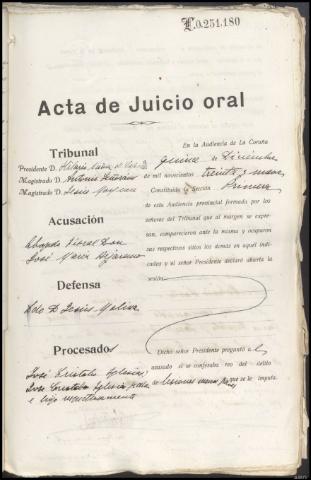 L.0.251.180
Acta de Juicio oral
Tribunal
Presidente D. Hilario
Magistrado D. Antonio
Magistrado D. Jesús
Acusación
Abogado Fiscal Don
José María Bejarano
Defensa
Ldo D. Jesús Molina
Procesados
José Cristobo Iglesias,
José Cristobo Iglesias padre
e hijo respectivamente
En la Audiencia de La Coruña
quince de Diciembre
de mil novecientos treinta y nueve
Constituida la Sección Primera
de esta Audiencia provincial formada por los
señores del Tribunal que al margen se expre-
san, comparecieron ante la misma y ocuparon
sus respectivos sitios los demás en aquél indi-
cados y el señor Presidente declaró abierta la
sesión.
Dicho señor Presidente preguntó al
acusado si se confesaba reo del delito
de lesiones menos graves que se le imputa.